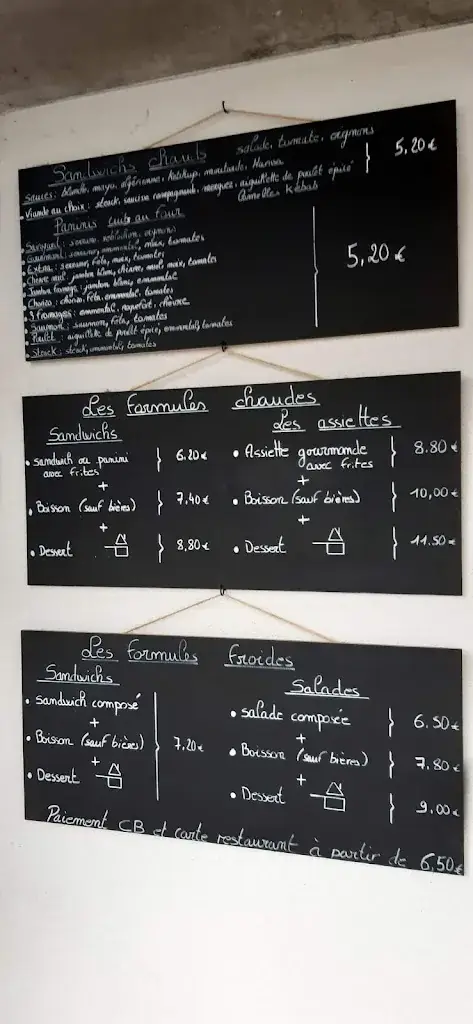 Sandwichs chauds
salade, tomate, oignons
Sauces: blanche, mayo, algérienne, ketchup, moutarde, Harissa
5,20€
• Viande au choix: steak, saucisse campagnarde, merguez, aiguillette de poulet épicé
lamelles kébab
Paninis cuits au four
oignons
tomates
• Extra: feta, noix, tomates
• Chèvre miel: jambon blanc, chèvre, miel, noix, tomates
• Jambon fromage: jambon blanc, emmental
• Chorizo: chorizo, feta, emmental, tomates
• 3 fromages: emmental, roquefort, chèvre
• Saumon: saumon, feta, tomates
• Poulet: aiguillette de poulet épicé, emmental, tomates
• Steack: steack, emmental, tomates
5,20€
Les Formules chaudes
Sandwichs
• sandwich ou panini 6.20€
avec frites
+
• Boisson (sauf bières) 7,40€
+
• Dessert 8,80€
Les assiettes
• Assiette gourmande 8.80€
avec frites
+
• Boisson (sauf bières) 10,00€
+
• Dessert 11.50€
Les Formules Froides
Sandwichs
• sandwich composé
+
• Boisson (sauf bières) 7.20€
+
• Dessert
Salades
• salade composée 6.50€
+
• Boisson (sauf bières) 7.80€
+
• Dessert 9.00€
Paiement CB et carte restaurant à partir de 6,50€